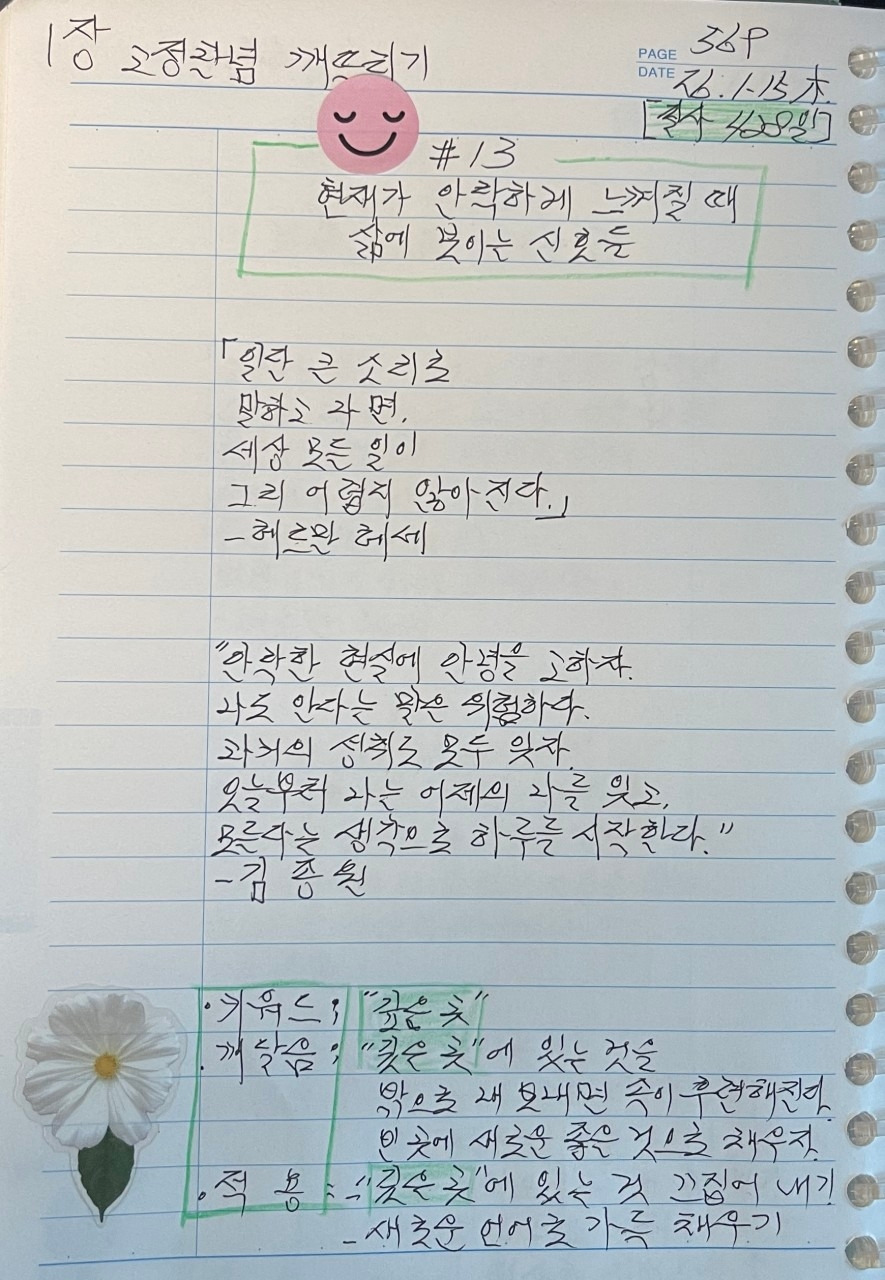 1장 고정관념 깨뜨리기
PAGE 36P
DATE 26.1.15 木.
[필사 428일]
#13
현재가 안락하게 느껴질 때
삶에 보이는 신호들
「일단 큰 소리로
말하고 나면,
세상 모든 일이
그리 어렵지 않아진다.」
-헤르만 헤세
"안락한 현실에 안녕을 고하자.
나도 안다는 말은 위험하다.
과거의 성취도 모두 잊자.
오늘부터 나는 어제의 나를 잊고,
모른다는 생각으로 하루를 시작한다."
-김종원
·키워드; "깊은 곳"
·깨달음; "깊은 곳"에 있는 것을
밖으로 내보내면 속이 후련해진다
빈 곳에 새로운 좋은 것으로 채우자.
·적용: -"깊은 곳"에 있는 것 끄집어 내기
-새로운 언어로 가득 채우기